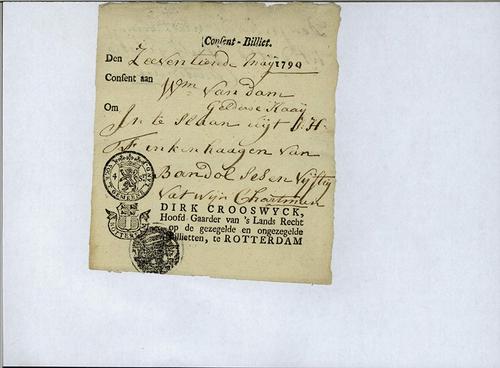 Consent-Billiet.
Den Zeeventiende Maÿ 1790
Consent aan Wm Van Dam
Gelderse Kaaÿ
Om
In te slaan uÿt
Finkenhaagen van
Bandol Ses en Vÿftig
vat wÿn
DIRK CROOSWYCK,
Hoofd Gaarder van 's Lands Recht
op de gezegelde en ongezegelde
Billietten, te ROTTERDAM